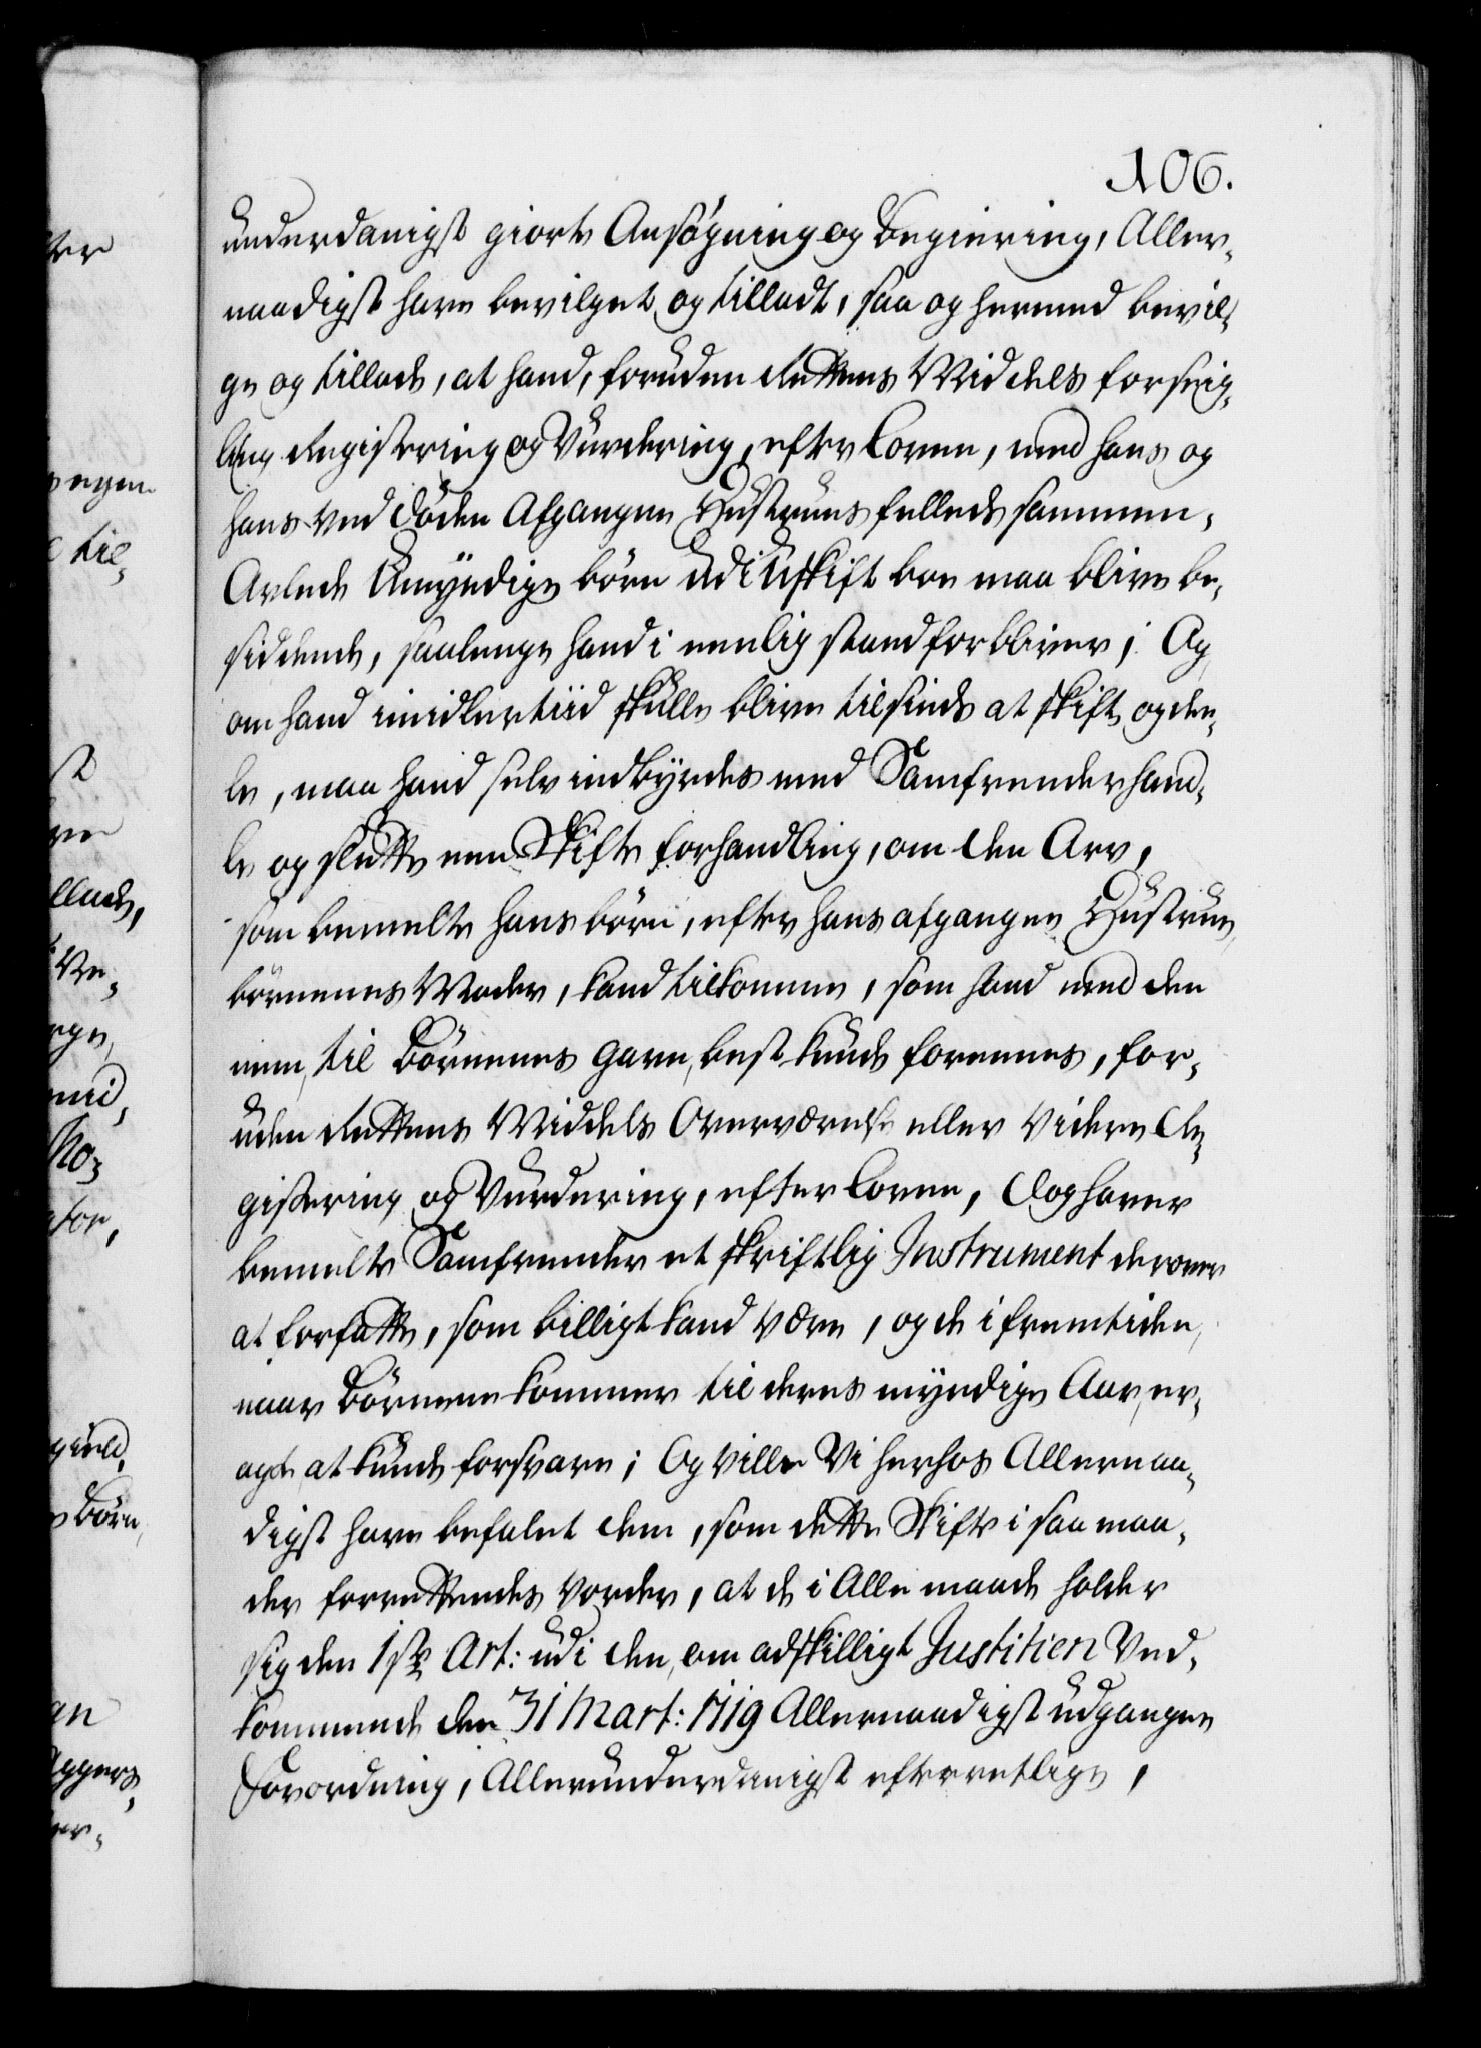 106.
underdanigst giorte Ansøgning og Begiering, Aller-
naadigst have bevilget og tilladt, saa og hermed bevil-
ge og tillade, at hand, foruden Rettens Middels forseig-
ling Registering og Vurdering, efter Loven, med hans og
hans ved døden Afgangne Hustrues felleds sammen-
Avlede Umyndige børn udi Uskift boe maa blive be-
siddende, saalenge hand i eenlig stand forbliver; Og
om hand imidlertiid skulle blive tilsinds at skifte og dee-
le, maa hand self indbyrdes med Samfrender hand-
le og slutte een Skifte forhandling, om den Arv,
som bemelte hans børn, efter hans afgangne Hustrue,
børnenes Moder, kand tilkomme, som hand med dem
een, til Børnenes Gavn, best kunde foreenes, for-
uden Rettens Middels Overværelse eller Videre Re-
gistering og Vurdering, efter Loven, Dog haver
bemelte Samfrender et skriftlig Instrument derover
at forfatte, som billigt kand være, og de i fremtiden,
naar Børnene kommer til deres myndige Aar, er-
agte at kunde forsvare; Og ville Vi herhos Allernaa-
digst have befalet dem, som dette Skifte i saa maa-
der forrettendes vorder, at de i Alle maade holder
sig den 1ste Art: udi den, om adskilligt Justitien Ved-
kommende den 31 Mart: 1719 Allernaadigst udgangne
Forordning, Allerunderdanigst efterretlige,